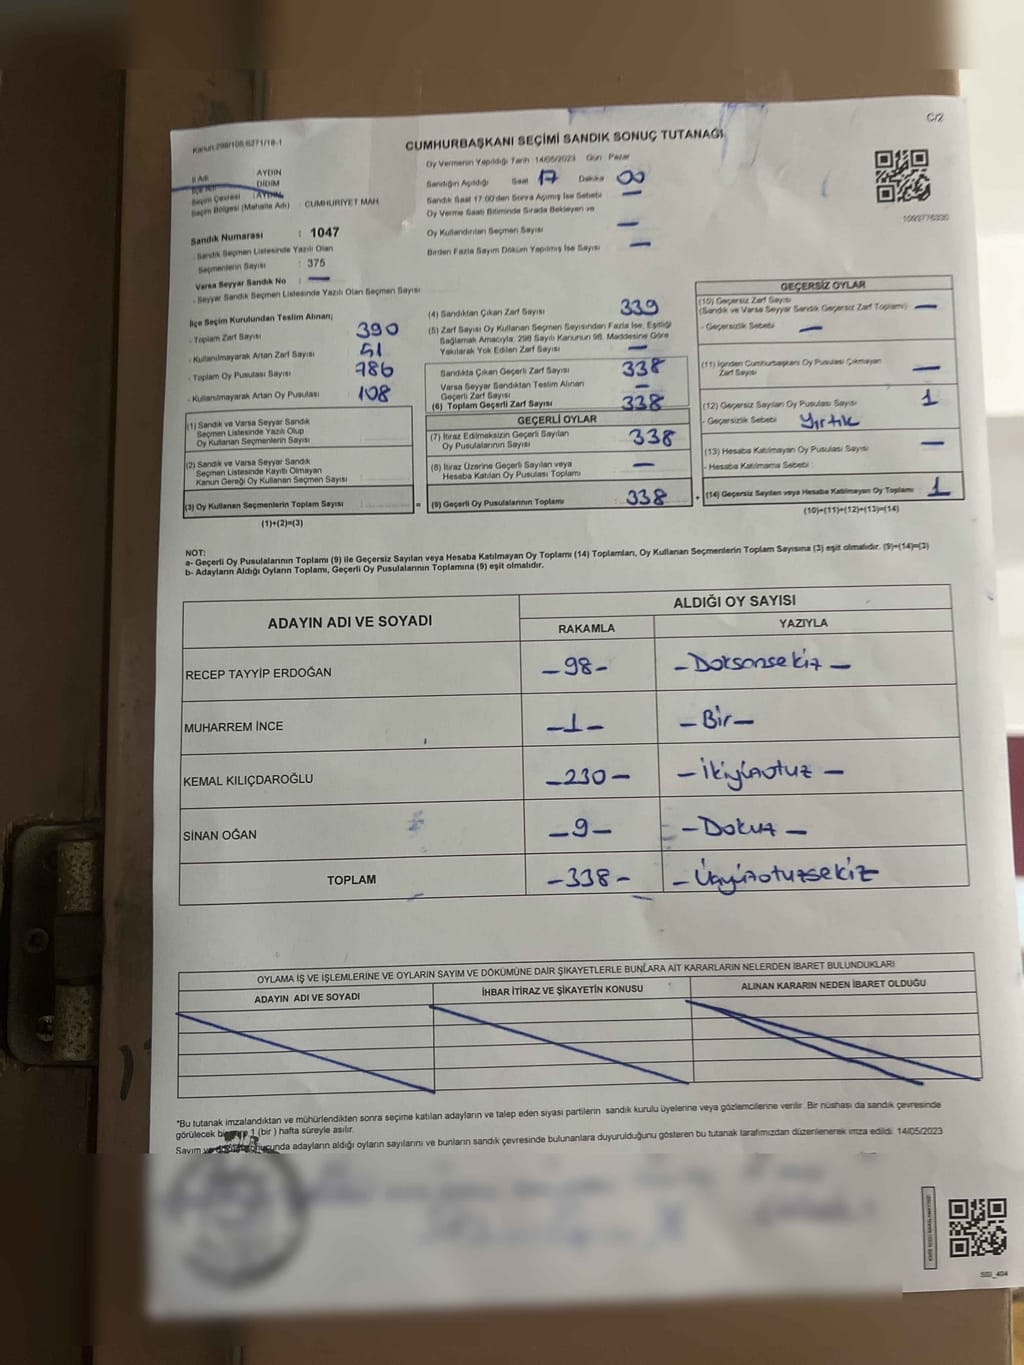 C/2
Kanun:298/108.6271/18-1
CUMHURBAŞKANI SEÇİMİ SANDIK SONUÇ TUTANAĞI
Oy Vermenin Yapıldığı Tarih 14/05/2023 Gün Pazar
İl Adı AYDIN
İlçe Adı DİDİM
Seçim Çevresi : AYDIN
Seçim Bölgesi (Mahalle Adı) : CUMHURİYET MAH.
Sandığın Açıldığı Saat 17 Dakika 00
Sandık Saat 17:00'den Sonra Açılmış İse Sebebi —
Oy Verme Saati Bitiminde Sırada Bekleyen ve
Oy Kullandırılan Seçmen Sayısı —
Birden Fazla Sayım Döküm Yapılmış İse Sayısı —
Sandık Numarası : 1047
- Sandık Seçmen Listesinde Yazılı Olan
Seçmenlerin Sayısı : 375
Varsa Seyyar Sandık No : —
- Seyyar Sandık Seçmen Listesinde Yazılı Olan Seçmen Sayısı
İlçe Seçim Kurulundan Teslim Alınan;
- Toplam Zarf Sayısı 390
- Kullanılmayarak Artan Zarf Sayısı 51
- Toplam Oy Pusulası Sayısı 786
- Kullanılmayarak Artan Oy Pusulası 108
(1) Sandık ve Varsa Seyyar Sandık
Seçmen Listesinde Yazılı Olup
Oy Kullanan Seçmenlerin Sayısı
(2) Sandık ve Varsa Seyyar Sandık
Seçmen Listesinde Kayıtlı Olmayan
Kanun Gereği Oy Kullanan Seçmen Sayısı
(3) Oy Kullanan Seçmenlerin Toplam Sayısı
(1)+(2)=(3)
(4) Sandıktan Çıkan Zarf Sayısı 339
(5) Zarf Sayısı Oy Kullanan Seçmen Sayısından Fazla İse, Eşitliği
Sağlamak Amacıyla; 298 Sayılı Kanunun 98. Maddesine Göre
Yakılarak Yok Edilen Zarf Sayısı —
Sandıkta Çıkan Geçerli Zarf Sayısı 338
Varsa Seyyar Sandıktan Teslim Alınan
Geçerli Zarf Sayısı —
(6) Toplam Geçerli Zarf Sayısı 338
GEÇERLİ OYLAR
(7) İtiraz Edilmeksizin Geçerli Sayılan
Oy Pusulalarının Sayısı 338
(8) İtiraz Üzerine Geçerli Sayılan veya
Hesaba Katılan Oy Pusulası Toplamı —
= (9) Geçerli Oy Pusulalarının Toplamı 338
GEÇERSİZ OYLAR
(10) Geçersiz Zarf Sayısı
(Sandık ve Varsa Seyyar Sandık Geçersiz Zarf Toplamı) —
- Geçersizlik Sebebi —
(11) İçinden Cumhurbaşkanı Oy Pusulası Çıkmayan
Zarf Sayısı —
(12) Geçersiz Sayılan Oy Pusulası Sayısı 1
- Geçersizlik Sebebi Yırtık
(13) Hesaba Katılmayan Oy Pusulası Sayısı —
- Hesaba Katılmama Sebebi
+ (14) Geçersiz Sayılan veya Hesaba Katılmayan Oy Toplamı : 1
(10)+(11)+(12)+(13)=(14)
NOT:
a- Geçerli Oy Pusulalarının Toplamı (9) ile Geçersiz Sayılan veya Hesaba Katılmayan Oy Toplamı (14) Toplamları, Oy Kullanan Seçmenlerin Toplam Sayısına (3) eşit olmalıdır. (9)+(14)=(3)
b- Adayların Aldığı Oyların Toplamı, Geçerli Oy Pusulalarının Toplamına (9) eşit olmalıdır.
ADAYIN ADI VE SOYADI
ALDIĞI OY SAYISI
RAKAMLA YAZIYLA
RECEP TAYYİP ERDOĞAN –98– –Doksansekiz–
MUHARREM İNCE –1– –Bir–
KEMAL KILIÇDAROĞLU –230– –İkiyüzotuz–
SİNAN OĞAN –9– –Dokuz–
TOPLAM –338– –Üçyüzotuzsekiz
OYLAMA İŞ VE İŞLEMLERİNE VE OYLARIN SAYIM VE DÖKÜMÜNE DAİR ŞİKAYETLERLE BUNLARA AİT KARARLARIN NELERDEN İBARET BULUNDUKLARI
ADAYIN ADI VE SOYADI İHBAR İTİRAZ VE ŞİKAYETİN KONUSU ALINAN KARARIN NEDEN İBARET OLDUĞU
*Bu tutanak imzalandıktan ve mühürlendikten sonra seçime katılan adayların ve talep eden siyasi partilerin sandık kurulu üyelerine veya gözlemcilerine verilir. Bir nüshası da sandık çevresinde
görülecek bir 1 (bir) hafta süreyle asılır.
Sayım ve adayların aldığı oyların sayılarını ve bunların sandık çevresinde bulunanlara duyurulduğunu gösteren bu tutanak tarafımızdan düzenlenerek imza edildi. 14/05/2023